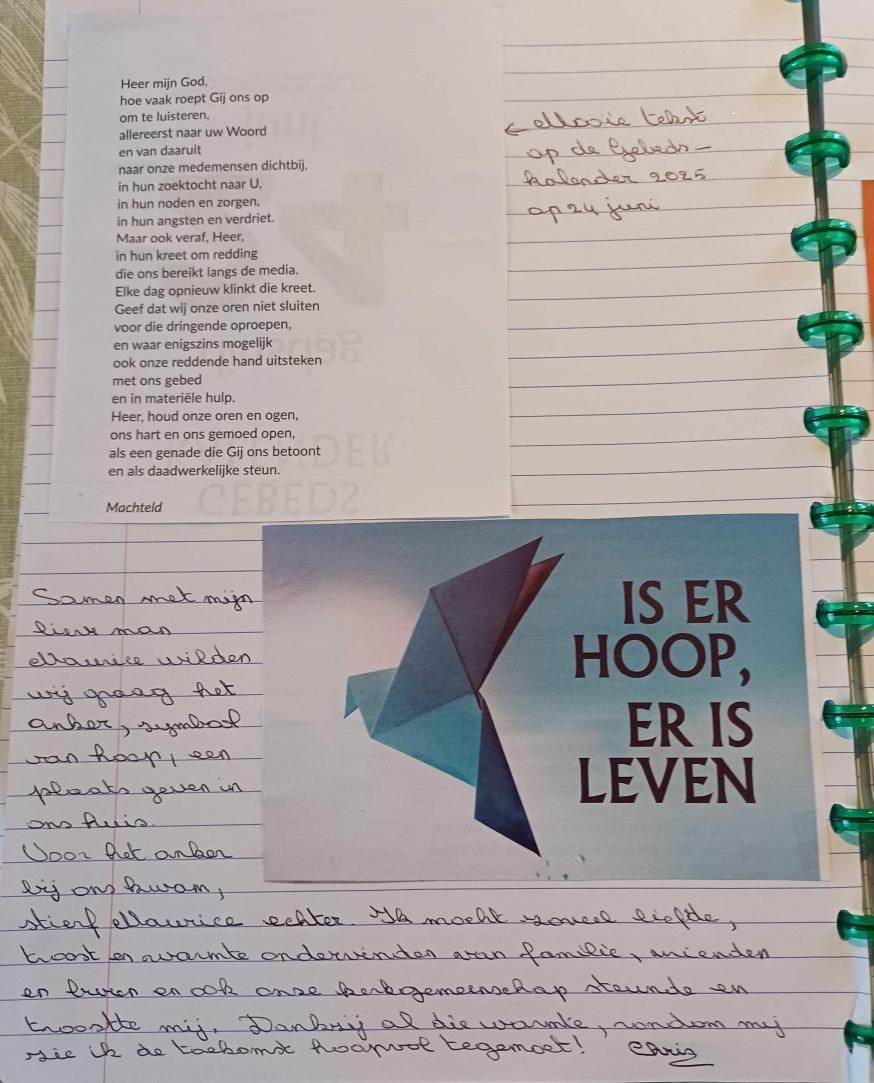 Heer mijn God,
hoe vaak roept Gij ons op
om te luisteren,
allereerst naar uw Woord
en van daaruit
naar onze medemensen dichtbij,
in hun zoektocht naar U,
in hun noden en zorgen,
in hun angsten en verdriet.
Maar ook veraf, Heer,
in hun kreet om redding
die ons bereikt langs de media.
Elke dag opnieuw klinkt die kreet.
Geef dat wij onze oren niet sluiten
voor die dringende oproepen,
en waar enigszins mogelijk
ook onze reddende hand uitsteken
met ons gebed
en in materiële hulp.
Heer, houd onze oren en ogen,
ons hart en ons gemoed open,
als een genade die Gij ons betoont
en als daadwerkelijke steun.
Machteld
← Mooie tekst
op de Gebeds-
kalender 2025
op 24 juni
IS ER
HOOP,
ER IS
LEVEN
Samen met mijn
lieve man
Maurice wilden
wij graag het
anker, symbool
van hoop, een
plaats geven in
ons huis.
Voor het anker
bij ons kwam,
stierf Maurice echter. Ik mocht zoveel liefde,
troost en warmte ondervinden van familie, vrienden
en buren en ook onze kerkgemeenschap steunde en
troostte mij. Dankzij al die warmte, rondom mij
zie ik de toekomst hoopvol tegemoet! Chris